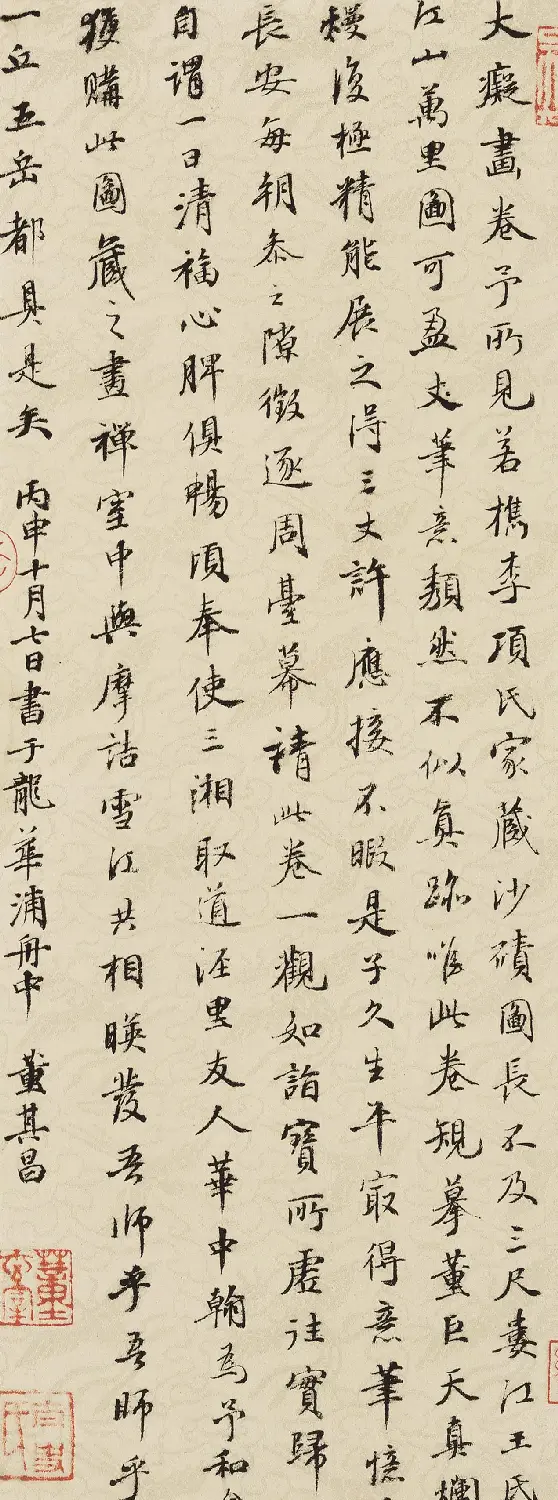 大癡畫卷予所見若檇李項氏家藏沙磧圖長不及三尺婁江王氏
江山萬里圖可盈丈筆意頹然不似真跡唯此卷規摹董巨天真爛
熳復極精能展之得三丈許應接不暇是子久生平最得意筆憶
長安每朝參之隙徵逐周臺幕請此卷一觀如詣寶所虛往實歸
自謂一日清福心脾俱暢頃奉使三湘取道涇里友人華中翰為予和
獲購此圖藏之畫禪室中與摩詰雪江共相暎發吾師乎吾師乎
一丘五岳都具是矣 丙申十月七日書于龍華浦舟中 董其昌